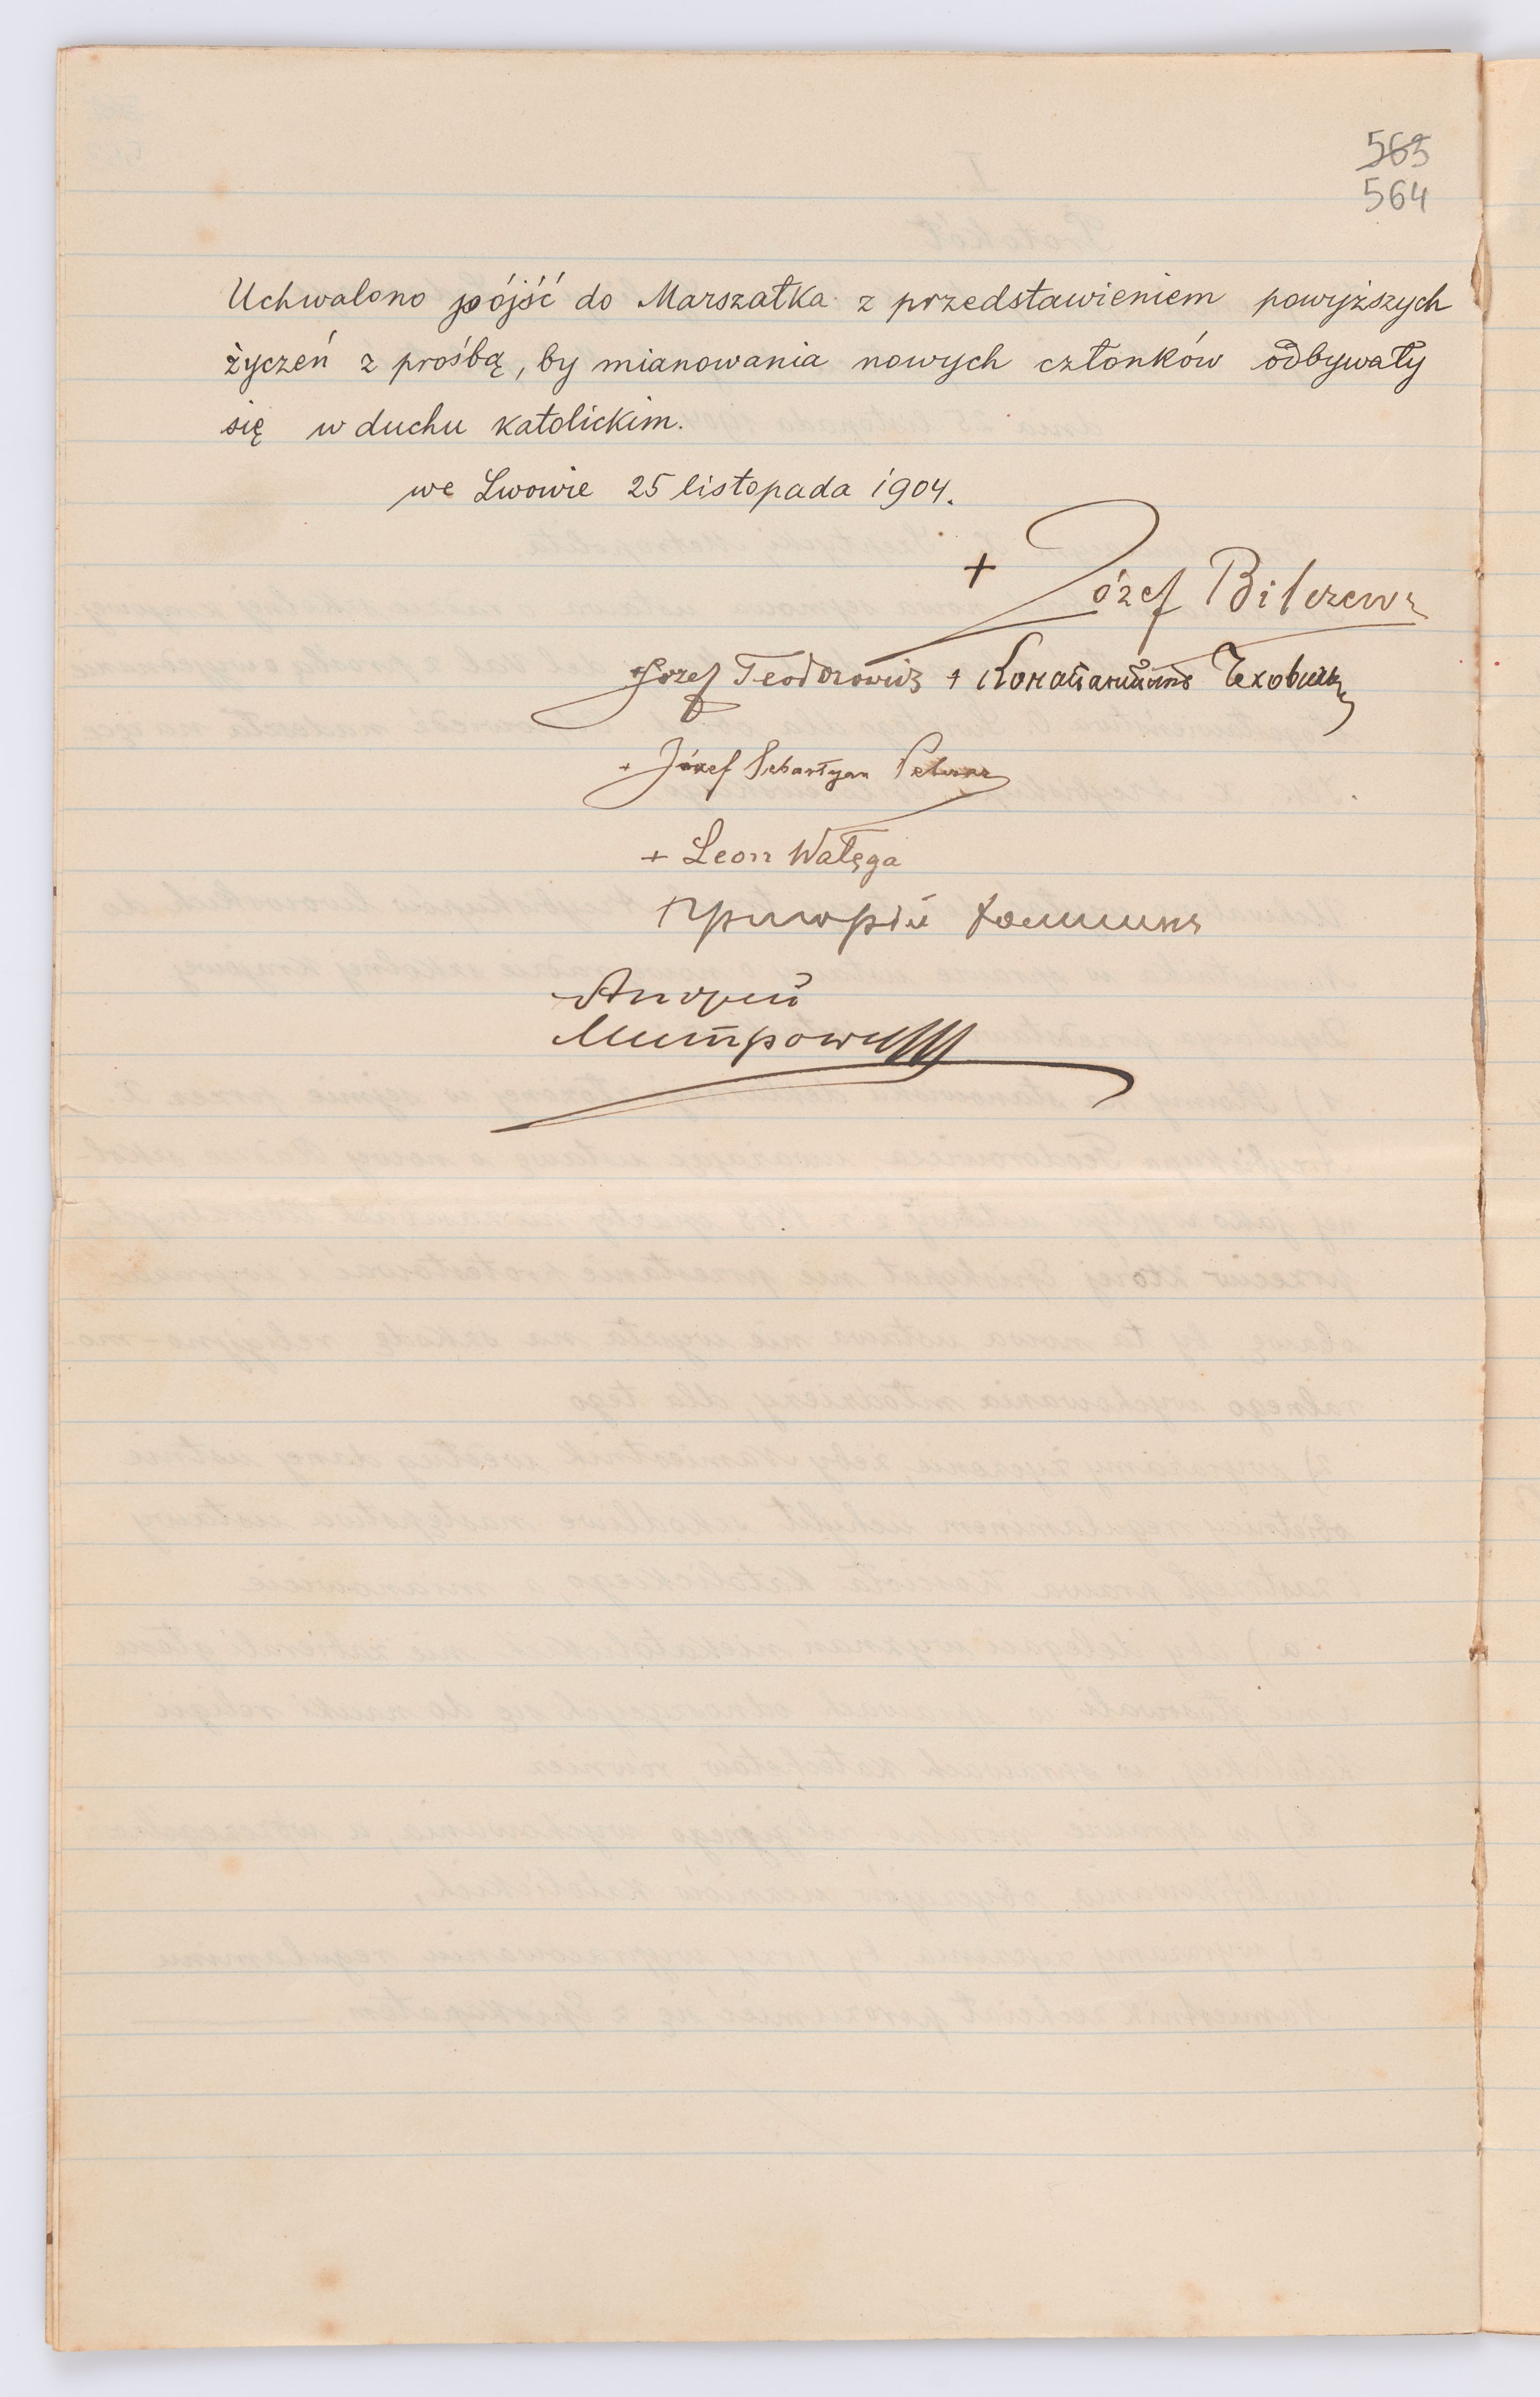 565
564
Uchwalono pójść do Marszałka z przedstawieniem powyższych
życzeń z prośbą, by mianowania nowych członków odbywały
się w duchu katolickim.
we Lwowie 25 listopada 1904.
+ Józef Bilczewski
+ Józef Teodorowicz + Константинъ Чеховичъ
+ Józef Sebastyan Pelczar
+ Leon Wałęga
+ Григорій Хомишинъ
Андрей
Митрополит